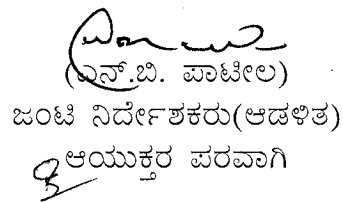 (ಎನ್.ಬಿ. ಪಾಟೀಲ)
ಜಂಟಿ ನಿರ್ದೇಶಕರು(ಆಡಳಿತ)
ಆಯುಕ್ತರ ಪರವಾಗಿ